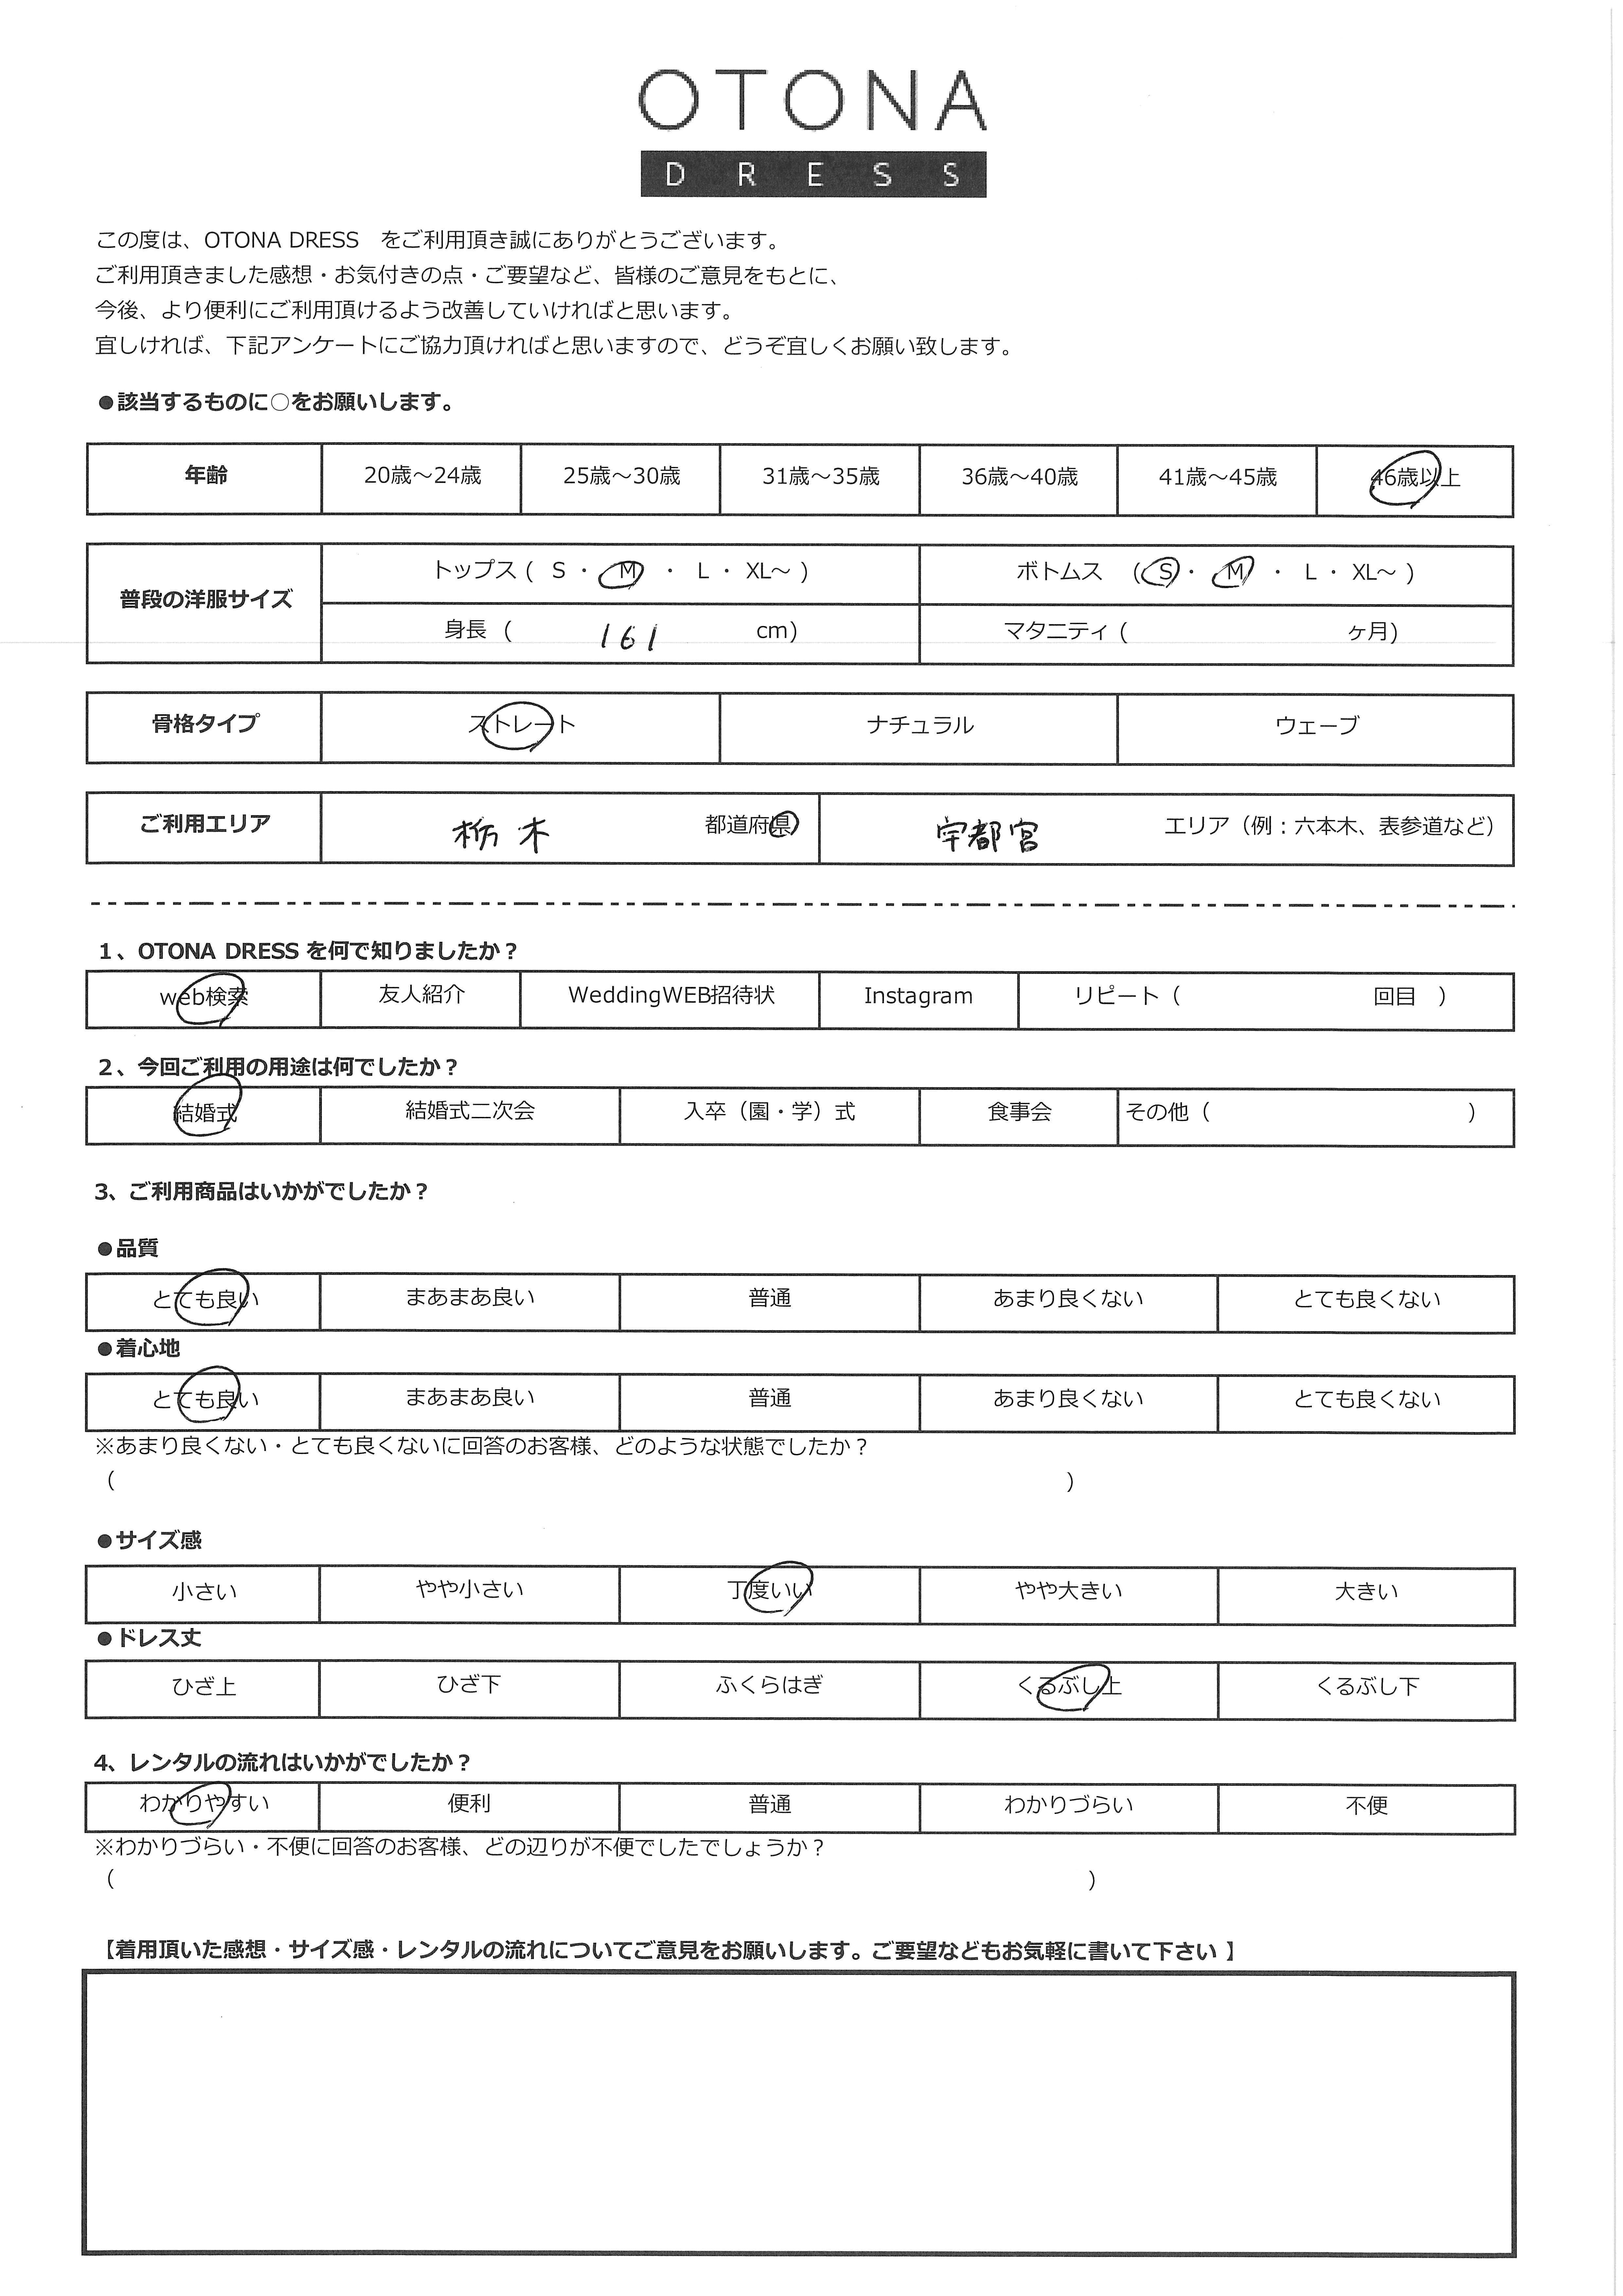 OTONA
DRESS
この度は、OTONA DRESS をご利用頂き誠にありがとうございます。
ご利用頂きました感想・お気付きの点・ご要望など、皆様のご意見をもとに、
今後、より便利にご利用頂けるよう改善していければと思います。
宜しければ、下記アンケートにご協力頂ければと思いますので、どうぞ宜しくお願い致します。
●該当するものに○をお願いします。
年齢 20歳～24歳 25歳～30歳 31歳～35歳 36歳～40歳 41歳～45歳 46歳以上
普段の洋服サイズ
トップス ( S ・ M ・ L ・ XL～ ) ボトムス ( S ・ M ・ L ・ XL～ )
身長 ( 161 cm) マタニティ ( ヶ月)
骨格タイプ ストレート ナチュラル ウェーブ
ご利用エリア 栃木 都道府県 宇都宮 エリア（例：六本木、表参道など）
1、OTONA DRESS を何で知りましたか？
web検索 友人紹介 WeddingWEB招待状 Instagram リピート（ 回目 ）
2、今回ご利用の用途は何でしたか？
結婚式 結婚式二次会 入卒（園・学）式 食事会 その他（ ）
3、ご利用商品はいかがでしたか？
●品質
とても良い まあまあ良い 普通 あまり良くない とても良くない
●着心地
とても良い まあまあ良い 普通 あまり良くない とても良くない
※あまり良くない・とても良くないに回答のお客様、どのような状態でしたか？
（ ）
●サイズ感
小さい やや小さい 丁度いい やや大きい 大きい
●ドレス丈
ひざ上 ひざ下 ふくらはぎ くるぶし上 くるぶし下
4、レンタルの流れはいかがでしたか？
わかりやすい 便利 普通 わかりづらい 不便
※わかりづらい・不便に回答のお客様、どの辺りが不便でしたでしょうか？
（ ）
【着用頂いた感想・サイズ感・レンタルの流れについてご意見をお願いします。ご要望などもお気軽に書いて下さい 】